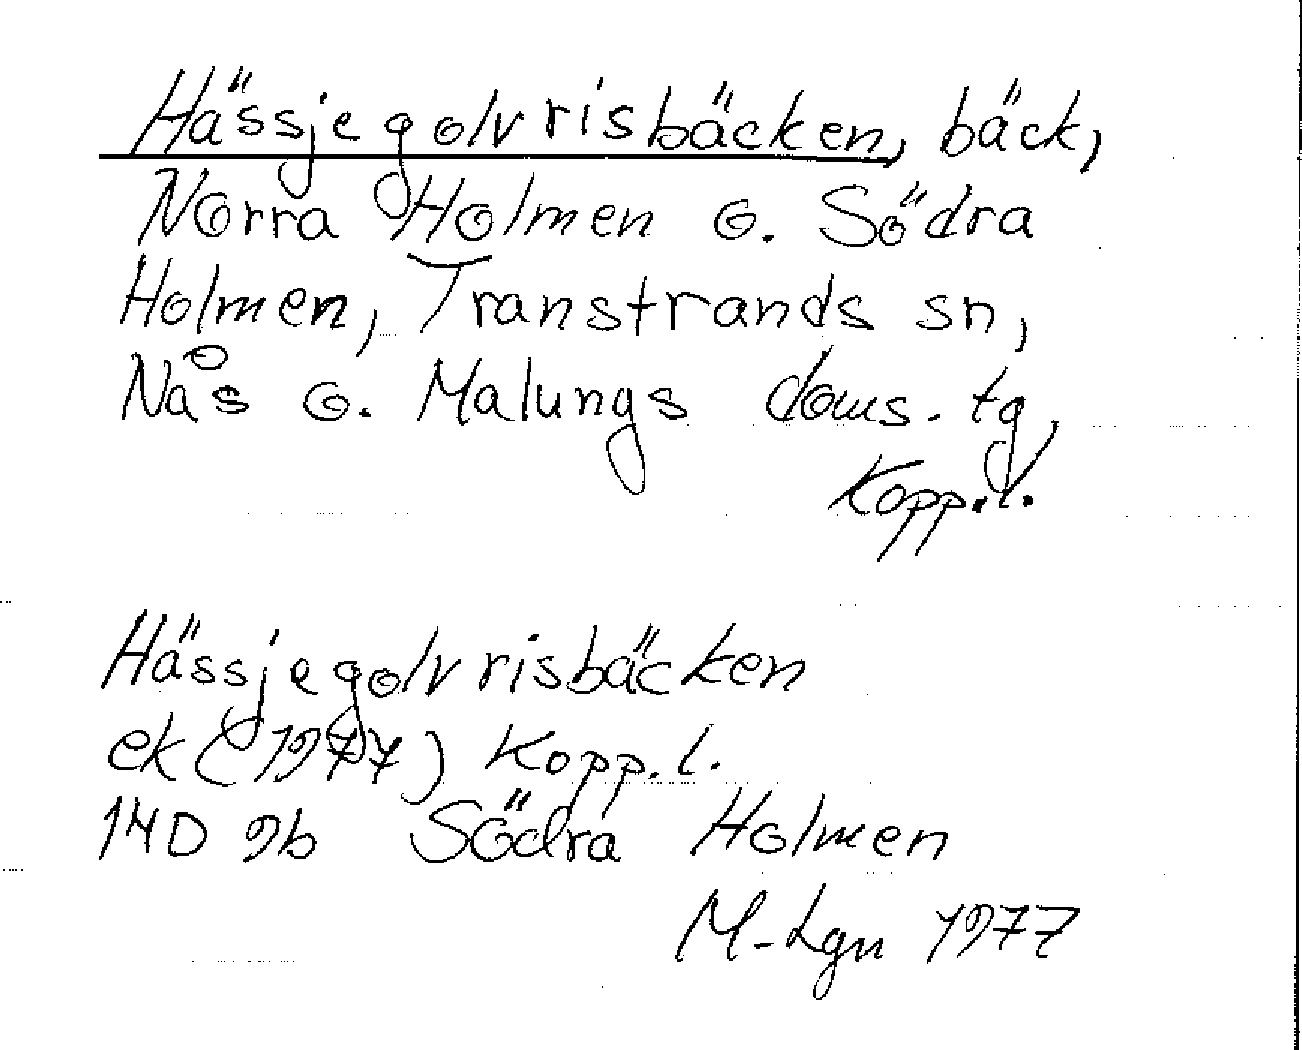 Hässjegolvrisbäcken, bäck,
Norra Holmen o. Södra
Holmen, Transtrands sn,
Nås o. Malungs doms. tg,
Kopp. l.
Hässjegolvrisbäcken
ek (1977) Kopp. l.
14D 9b Södra Holmen
M-Lgn 1977